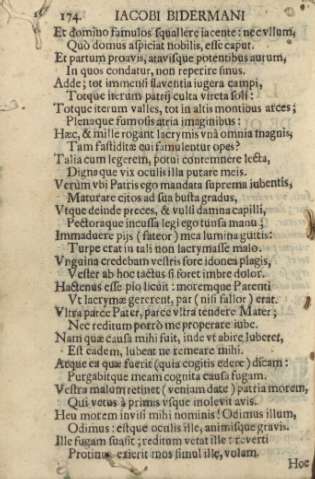 174. IACOBI BIDERMANI
Et domino famulos squallere iacente : nec vllum,
Quò domus aspiciat nobilis, esse caput.
Et partum proavis, atavisque potentibus aurum,
In quos condatur, non reperire sinus.
Adde; tot immensi flaventia iugera campi,
Totque iterum patrij culta vireta soli:
Totque iterum valles, tot in altis montibus arces;
Plenaque fumosis atria imaginibus:
Hæc, & mille rogant lacrymis vnà omnia magnis,
Tam fastiditæ qui famulentur opes?
Talia cum legerem, potui contemnere lecta,
Dignaque vix oculis illa putare meis.
Verùm vbi Patris ego mandata suprema iubentis,
Maturare citos ad sua busta gradus,
Vtque deinde preces, & vulsi damna capilli,
Pectoraque incussa legi ego tunsa manu;
Immaduere pijs (fateor) mea lumina guttis:
Turpe erat in tali non lacrymasse malo.
Vnguina credebam vestris fore idonea plagis,
Vester ab hoc tactus si foret imbre dolor.
Hactenus esse pio licuit : moremque Parenti
Vt lacrymæ gererent, par (nisi fallor) erat.
Vltra parce Pater, parce vltra tendere Mater;
Nec reditum porrò me properare iube.
Nam quæ causa mihi fuit, inde vt abire luberet,
Est eadem, lubeat ne remeare mihi.
Atque ea quæ fuerit (quia cogitis edere) dicam:
Purgabitque meam cognita causa fugam.
Vestra malum retinet (veniam date) patria morem,
Qui vetus à primis vsque molevit avis.
Heu morem invisi mihi nominis! Odimus illum,
Odimus : estque oculis ille, animisque gravis.
Ille fugam suasit; reditum vetat ille : reverti
Protinus exierit mos simul ille, volam.
Hoc